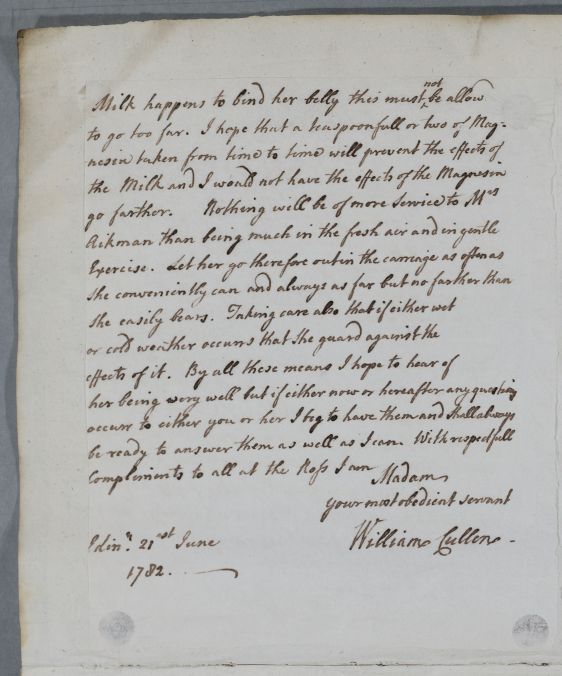 Milk happens to bind her belly this must not be allow
to go too far. I hope that a teaspoonfull or two of Mag-
nesia taken from time to time will prevent the effects of
the Milk and I would not have the effects of the Magnesia
go farther. Nothing will be of more Service to Mrs
Aikman than being much in the fresh air and in gentle
Exercise. Let her go therefore out in the carriage as often as
She conveniently can and always as far but no farther than
She easily bears. Taking care also that if either wet
or cold weather occurrs that She guard against the
effects of it. By all these means I hope to hear of
her being wery well but if either now or hereafter any questions
occurr to either you or her I beg to have them and Shall always
be ready to answer them as well as I can. With respectfull
Complements to all at the Ross I am
Madam
your most obedient servant
William Cullen.
Edinr. 21st June
1782.